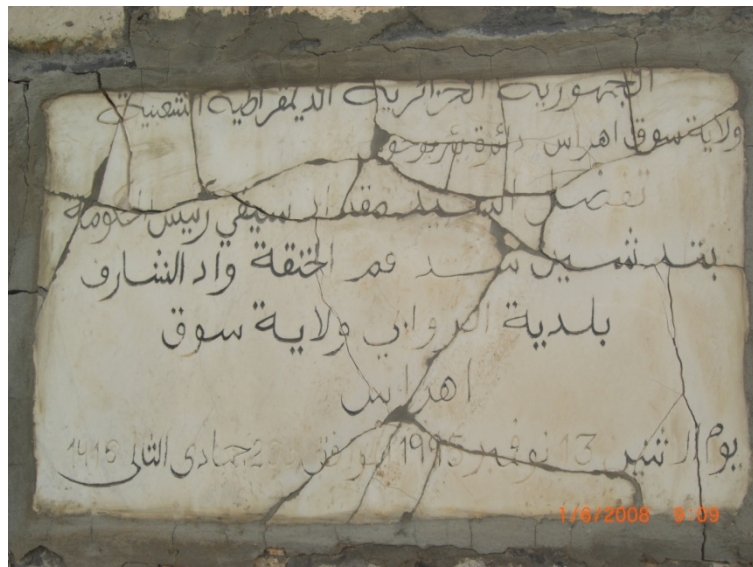 الجمهورية الجزائرية الديمقراطية الشعبية
ولاية سوق اهراس دائرة بئر بوحوش
تفضل السيد مقداد سيفي رئيس الحكومة
بتدشين سد فم الخنقة واد الشارف
بلدية الزوابي ولاية سوق
اهراس
يوم الاثنين 13 نوفمبر 1995 الموافق 20 جمادى الثاني 1416
1/6/2008 9:09